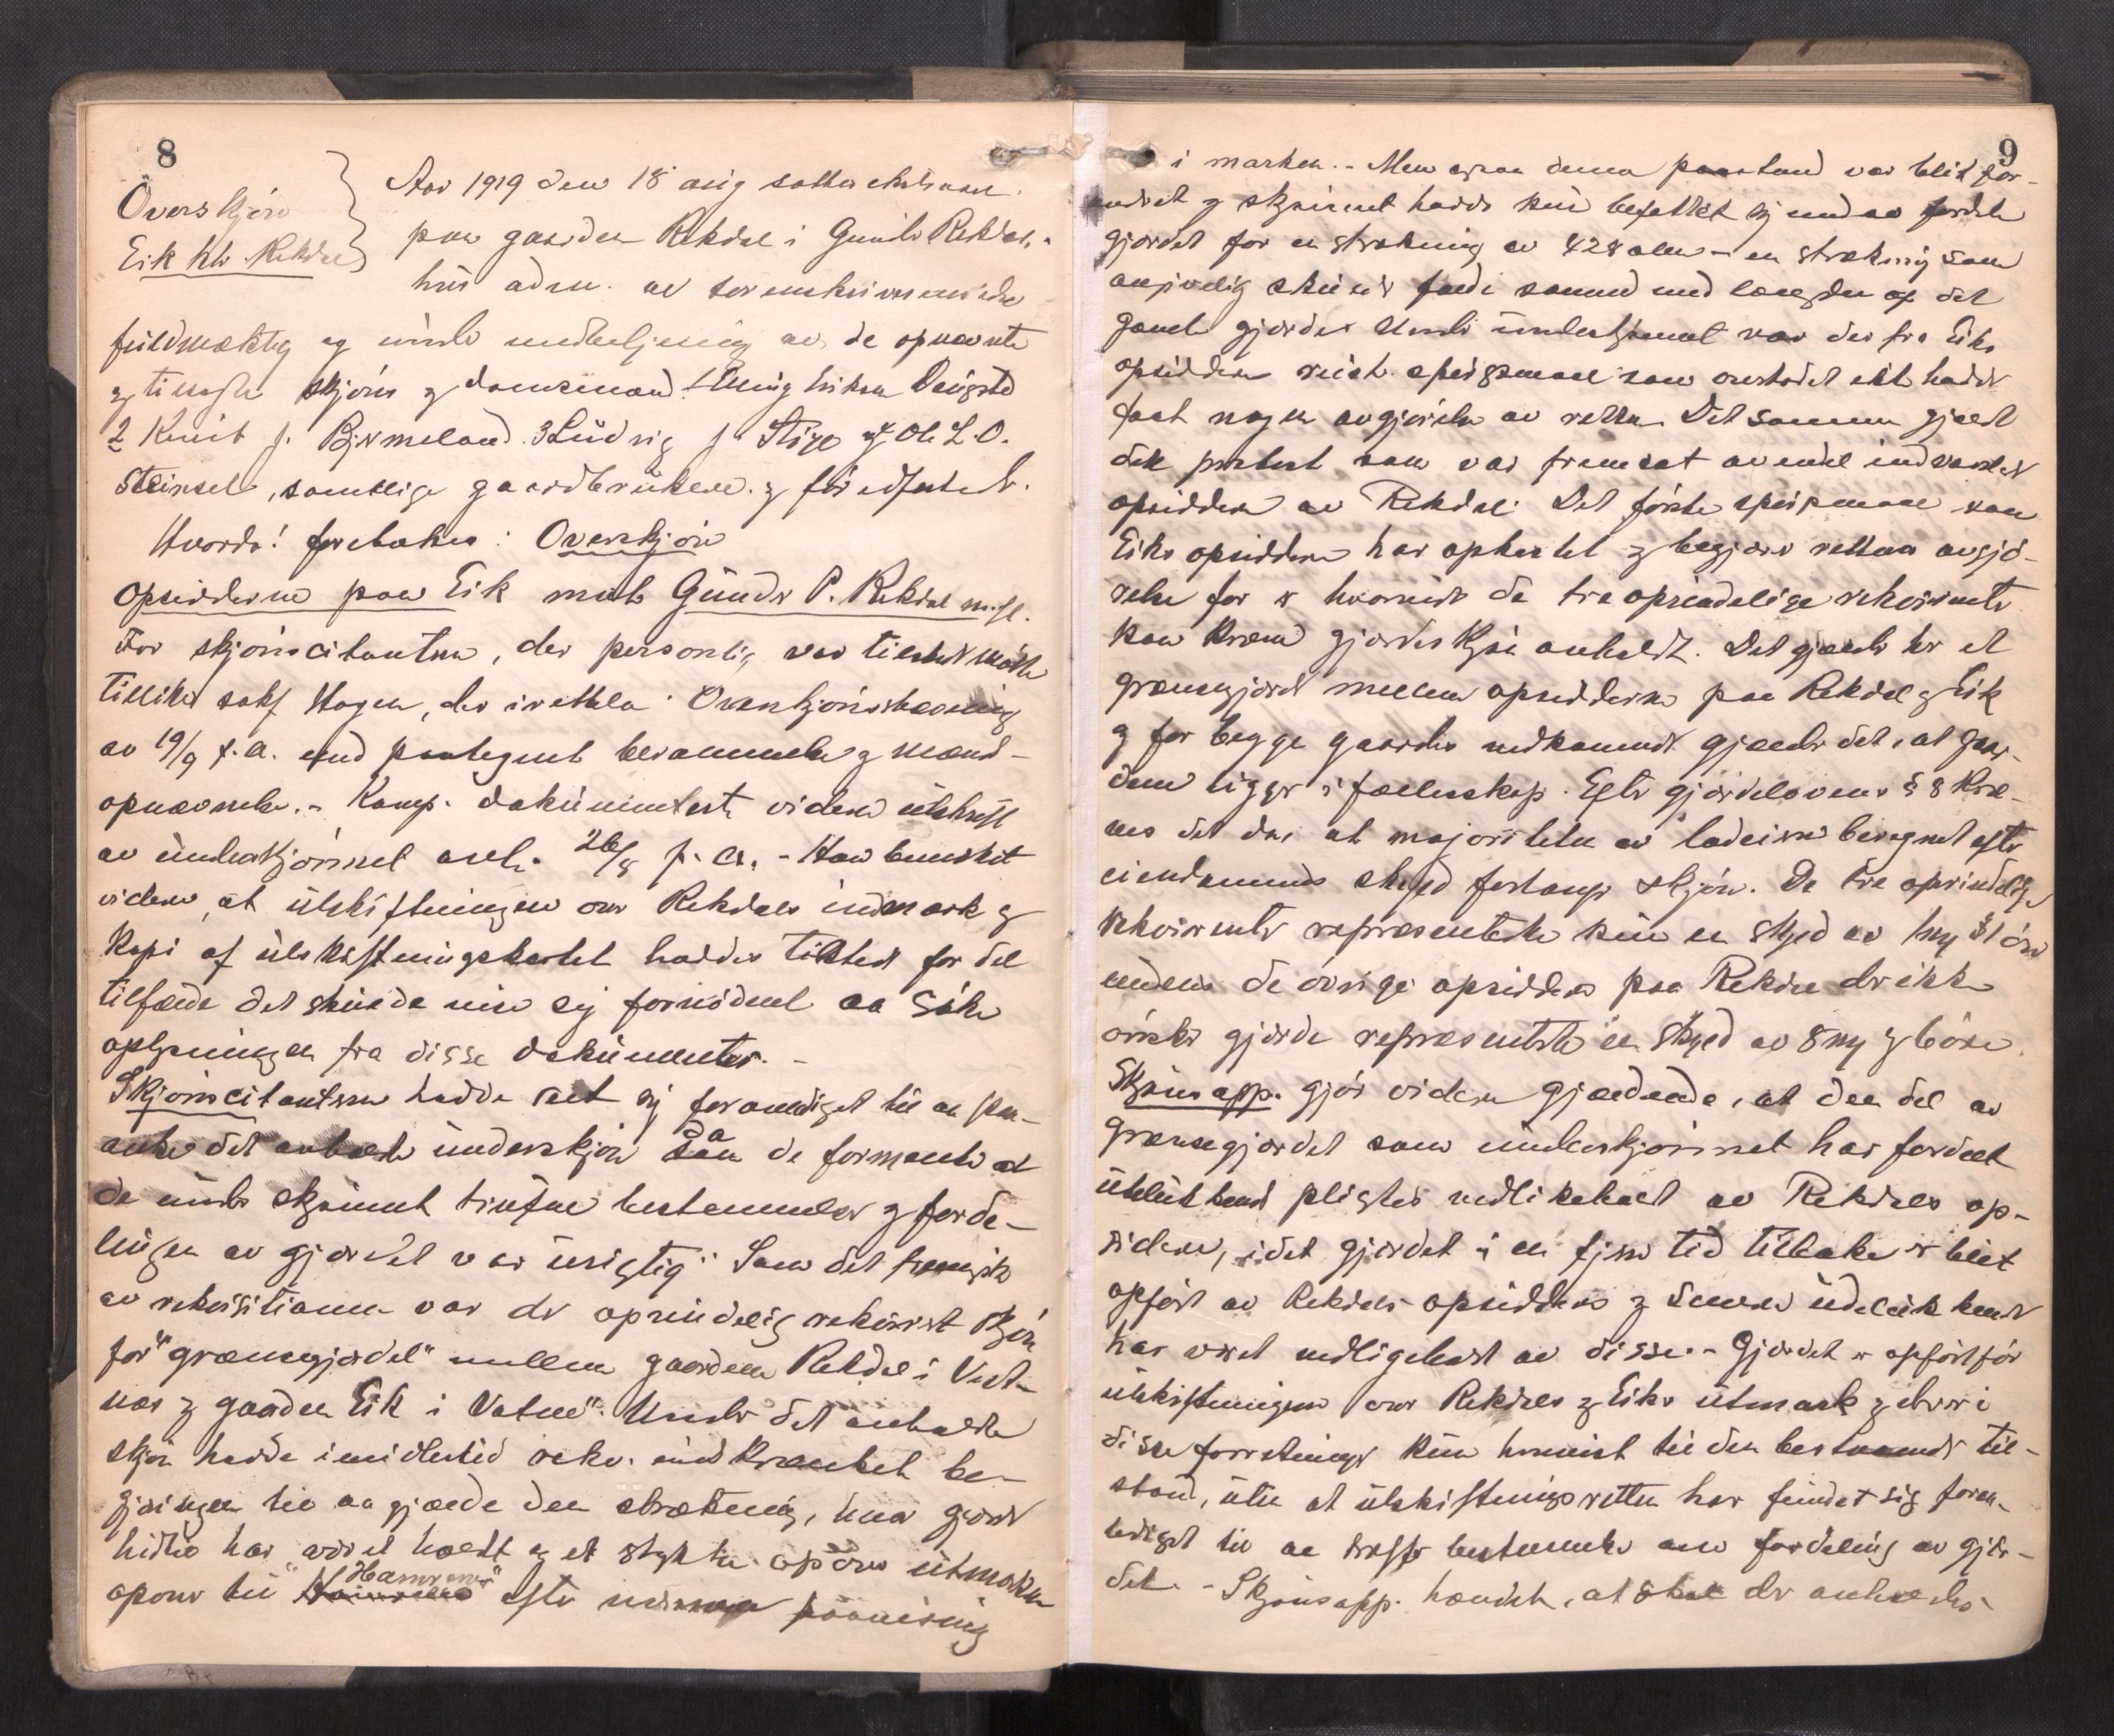 8
Overskjøn
Eik kl. Rekdal
Aar 1919 den 18 aug sattes ekstraret
paa gaarden Rekdal i Gunder Rekdals
hus adm. av sorenskriverens edsv
fuldmægtig og under medbetjening av de opnævnte
og tilsagte skjøns og domsmænd: 1 Elling Eriksen Daugstad
2 Knut J. Bjermeland 3 Ludvig J. Stige og 4 Ole L. O.
Steinsel, samtlige gaardbrukere og før edfæstede.
Hvorda! foretokes: Overskjøn
Opsidderne paa Eik mot Gunder P. Rekdal m. fl.
For skjønscitanterne, der personlig var tilstede møtte
tillike sakf Hagen, der irettela Overskjønsstævning
av 19/9 f. a. med paategnet berammelse og mænd-
opnævnelse. - Komp. dokumenterte videre utskrift
av underskjønnet avh. 26/8 f. a. - Han bemerket
videre, at utskiftningen over Rekdals indmark og
kopi af utskiftningskartet haddes tilstede for det
tilfælde det skulde vise sig fornødent aa søke
oplysninger fra disse dokumenter. -
Skjønscitanterne hadde set sig foranlediget til aa paa-
anke det avholdte underskjøn da de formente at
de under skjønnet trufne bestemmelser og forde-
lingen av gjerdet var urigtig. Som det fremgik
av rekvisitionen var der oprindelig rekvirert skjøn
for "grænsegjerdet" mellem gaarden Rekdal i Vest-
nes og gaarden Eik i Vatne". Under det avholdte
skjøn hadde imidlertid rekv. indskrænket be-
gjæringen til aa gjælde den strækning, hvor gjerde
hittil har været holdt og et stykke opover utmarken
opover til "Hammeren" efter nærmere paavisning
9
i marken. - Men ogsaa denne paastand var blit for-
andret og skjønnet hadde kun befattet sig med aa fordele
gjerdet for en strækning av 428 alen - en strækning som
angivelig skulde falde sammen med længden af det
gamle gjerde. Under underskjønnet var der fra Eiks
opsiddere reist spørgsmaal som overhodet ikke hadde
faat nogen avgjørelse av retten. Det samme gjaldt
den protest som var fremsat av endel indvarslede
opsiddere av Rekdal. Det første spørsmaal som
Eiks opsiddere har opkastet og begjært rettens avgjø-
relse for er hvorvidt de tre oprindelige rekvirenter
kan kræve gjerdeskjøn avholdt. Det gjælder her et
grænsegjerde mellem opsidderne paa Rekdal og Eik
og for begge gaardes vedkommende gjælder det, at gaar-
dene ligger i fællesskap. Efter gjerdelovens § 8 kræ-
ves det da, at majoriteten av lodeiere beregnet efter
eiendommens skyld forlanger skjøn. De tre oprindelige
rekvirenter repræsenterte kun en skyld av 1 my 31 øre
medens de øvrige opsiddere paa Rekdal der ikke
ønsker gjerde repræsenterte en skyld av 8 my og 6 øre.
Skjønsapp. gjør videre gjældende, at den del av
grænsegjerdet som underskjønnet har fordelt
utelukkende pligtes vedlikeholdt av Rekdals op-
sidere, idet gjerdet i en fjern tid tilbake er blit
opført av Rekdals opsiddere og senere udelukkende
har været vedligeholdt av disse. - Gjerdet er opført før
utskiftningen over Rekdals og Eiks utmark og der er i
disse forretninger kun henvist til den bestaaende til-
stand, uten at utskiftningsretten har fundet sig foran-
lediget til aa træffe bestemmelse om fordeling av gjer-
det. - Skjønsapp. hævdet, at skal der anholdes